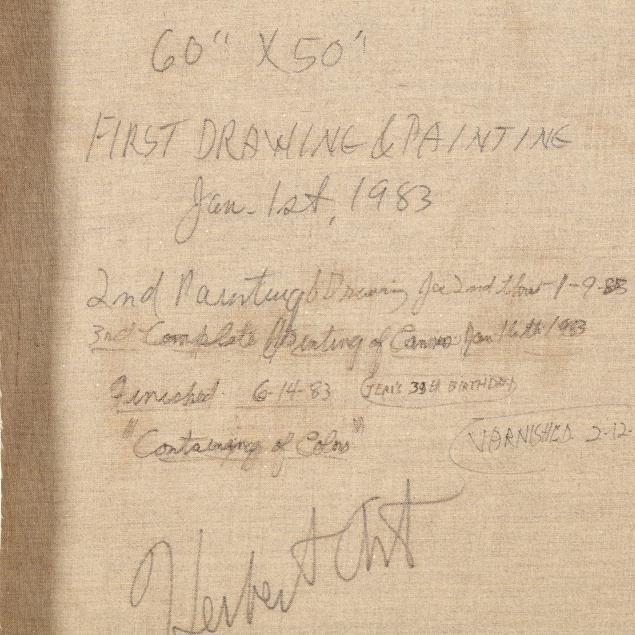 60" X 50"
FIRST DRAWING & PAINTING
Jan. 1st, 1983
2nd Painting & Drawing Jan 2nd thur 1-9-83
3rd Complete Painting of Canvas Jan 16th 1983
Finished 6-14-83 (JEAN'S 39th BIRTHDAY)
"Containing of Color"
VARNISHED 2-12-
Herbert